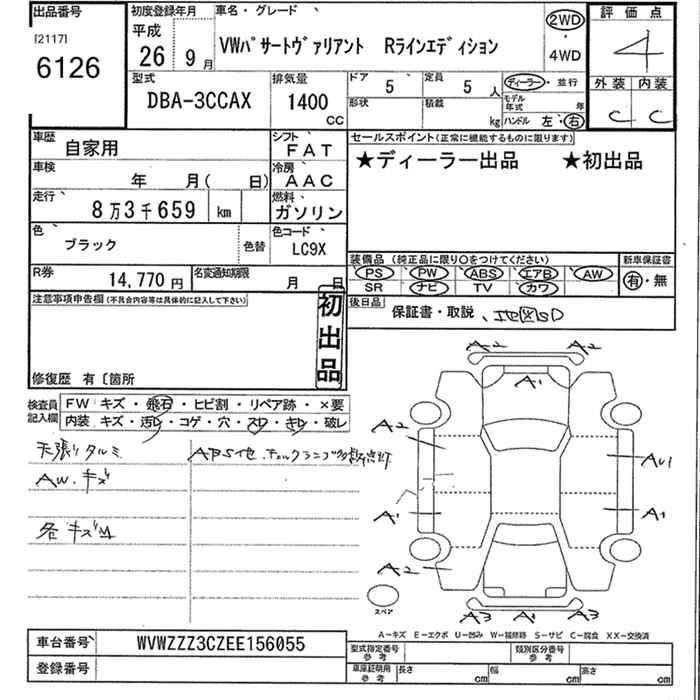 出品番号
[2117]
6126
初度登録年月
平成
26 9月
車名・グレード
VWパサートヴァリアント Rラインエディション
2WD
・
4WD
評価点
4
外装 内装
C C
型式
DBA-3CCAX
排気量
1400
CC
ドア 5
定員 5 人
形状
積載 kg
ディーラー・並行
モデル年式 年
ハンドル 左・右
車歴
自家用
シフト
FAT
車検
年 月( 日)
冷房
AAC
走行
8万3千659 km
燃料
ガソリン
色
ブラック
色替
色コード
LC9X
R券
14,770 円
名変通知期限
月 日
セールスポイント(正常に機能するものに限ります)
★ディーラー出品 ★初出品
装備品 (純正品に限り○をつけてください)
PS PW ABS エアB AW
SR ナビ TV カワ
新車保証書
有・無
後日品
保証書・取説、地図SD
注意事項申告欄(不具合内容等は具体的に記入して下さい)
初出品
修復歴 有〔箇所
検査員記入欄
FW キズ・飛石・ヒビ割・リペア跡・×要
内装 キズ・汚レ・コゲ・穴・スレ・きれ・破レ
天張りタルミ
AW.キズ
各キズ凹
ABS他.チェックランプ多数点灯
A2 A2
A1
A2
AU1
A1
A1
A2
A3 A1 A3
スペア
A-キズ E-エクボ U-凹み W-補修跡 S-サビ C-腐食 XX-交換済
車台番号
WVWZZZ3CZEE156055
登録番号
型式指定番号参考
類別区分番号参考
車庫証明用参考
長さ cm
幅 cm
高さ cm